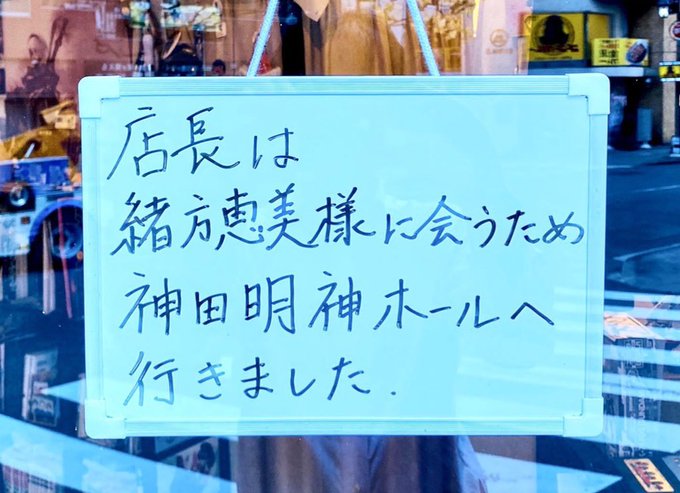 店長は
緒方恵美様に会うため
神田明神ホールへ
行きました.